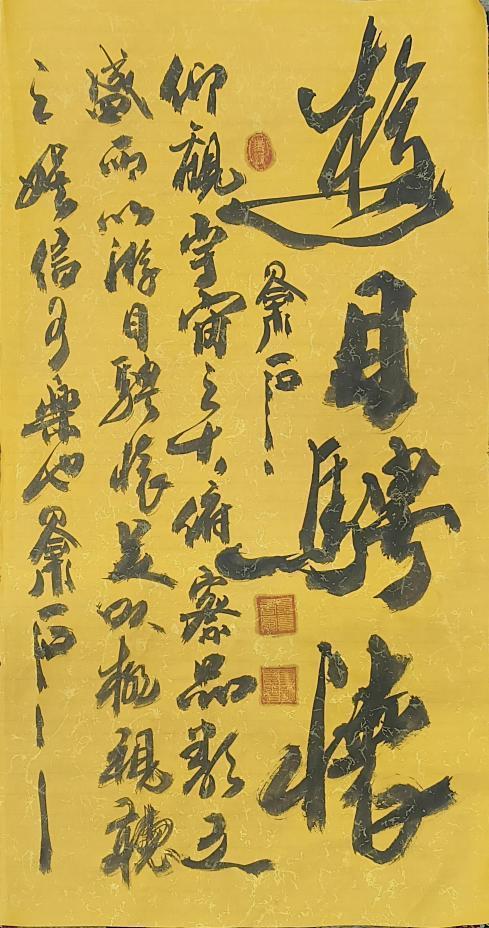 遊目騁懷
石
仰觀宇宙之大俯察品類之
盛所以游目騁懷足以極視聽
之娛信可樂也石